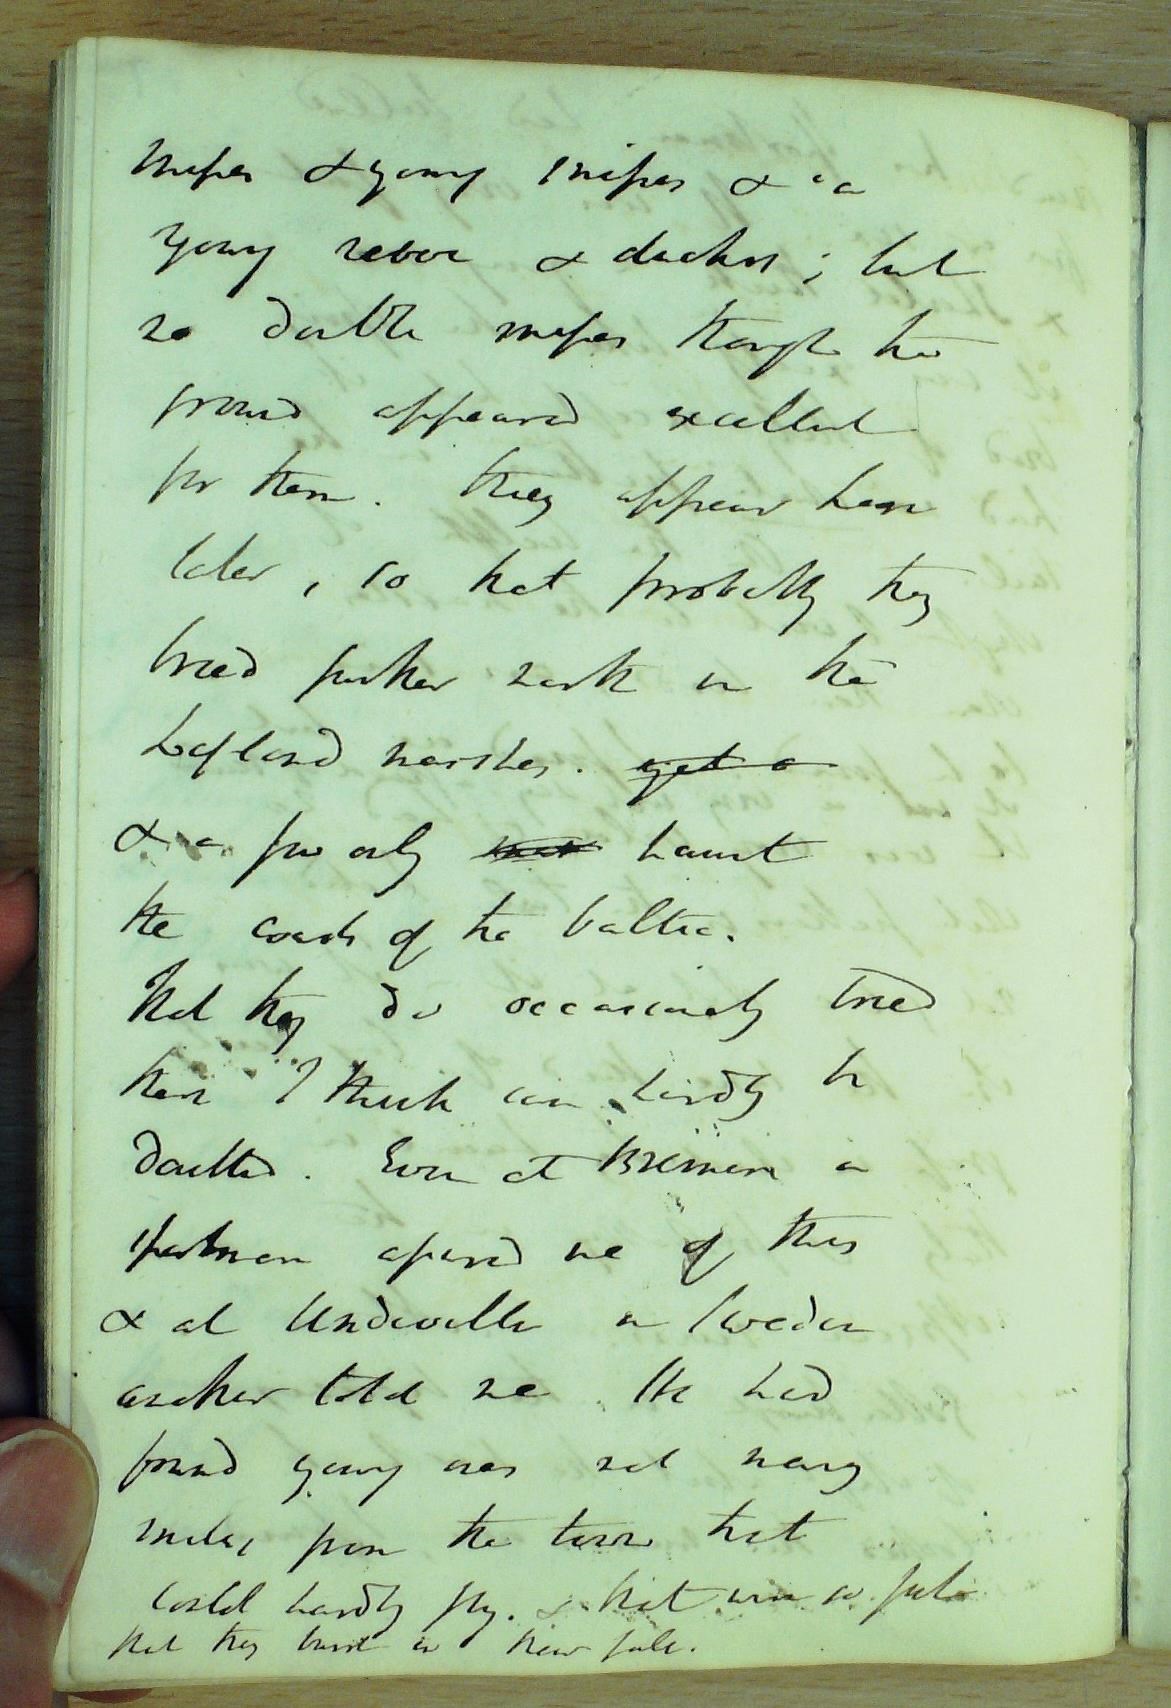 snipes & young snipes & a
young reeve & ducks ; but
no double snipes though the
ground appeared excellent
for them. They appear here
later, so that probably they
breed further north in the
Lapland marshes. yet a
& a few only haunt
the coasts of the baltic.
That they do occasionally breed
here I think can hardly be
doubted. Even at Bremen a
sportsman assured me of this
& at in Sweden
another told me He had
found young ones not many
miles from the town that
could hardly fly. & that were so fat
that they burst in their fall.